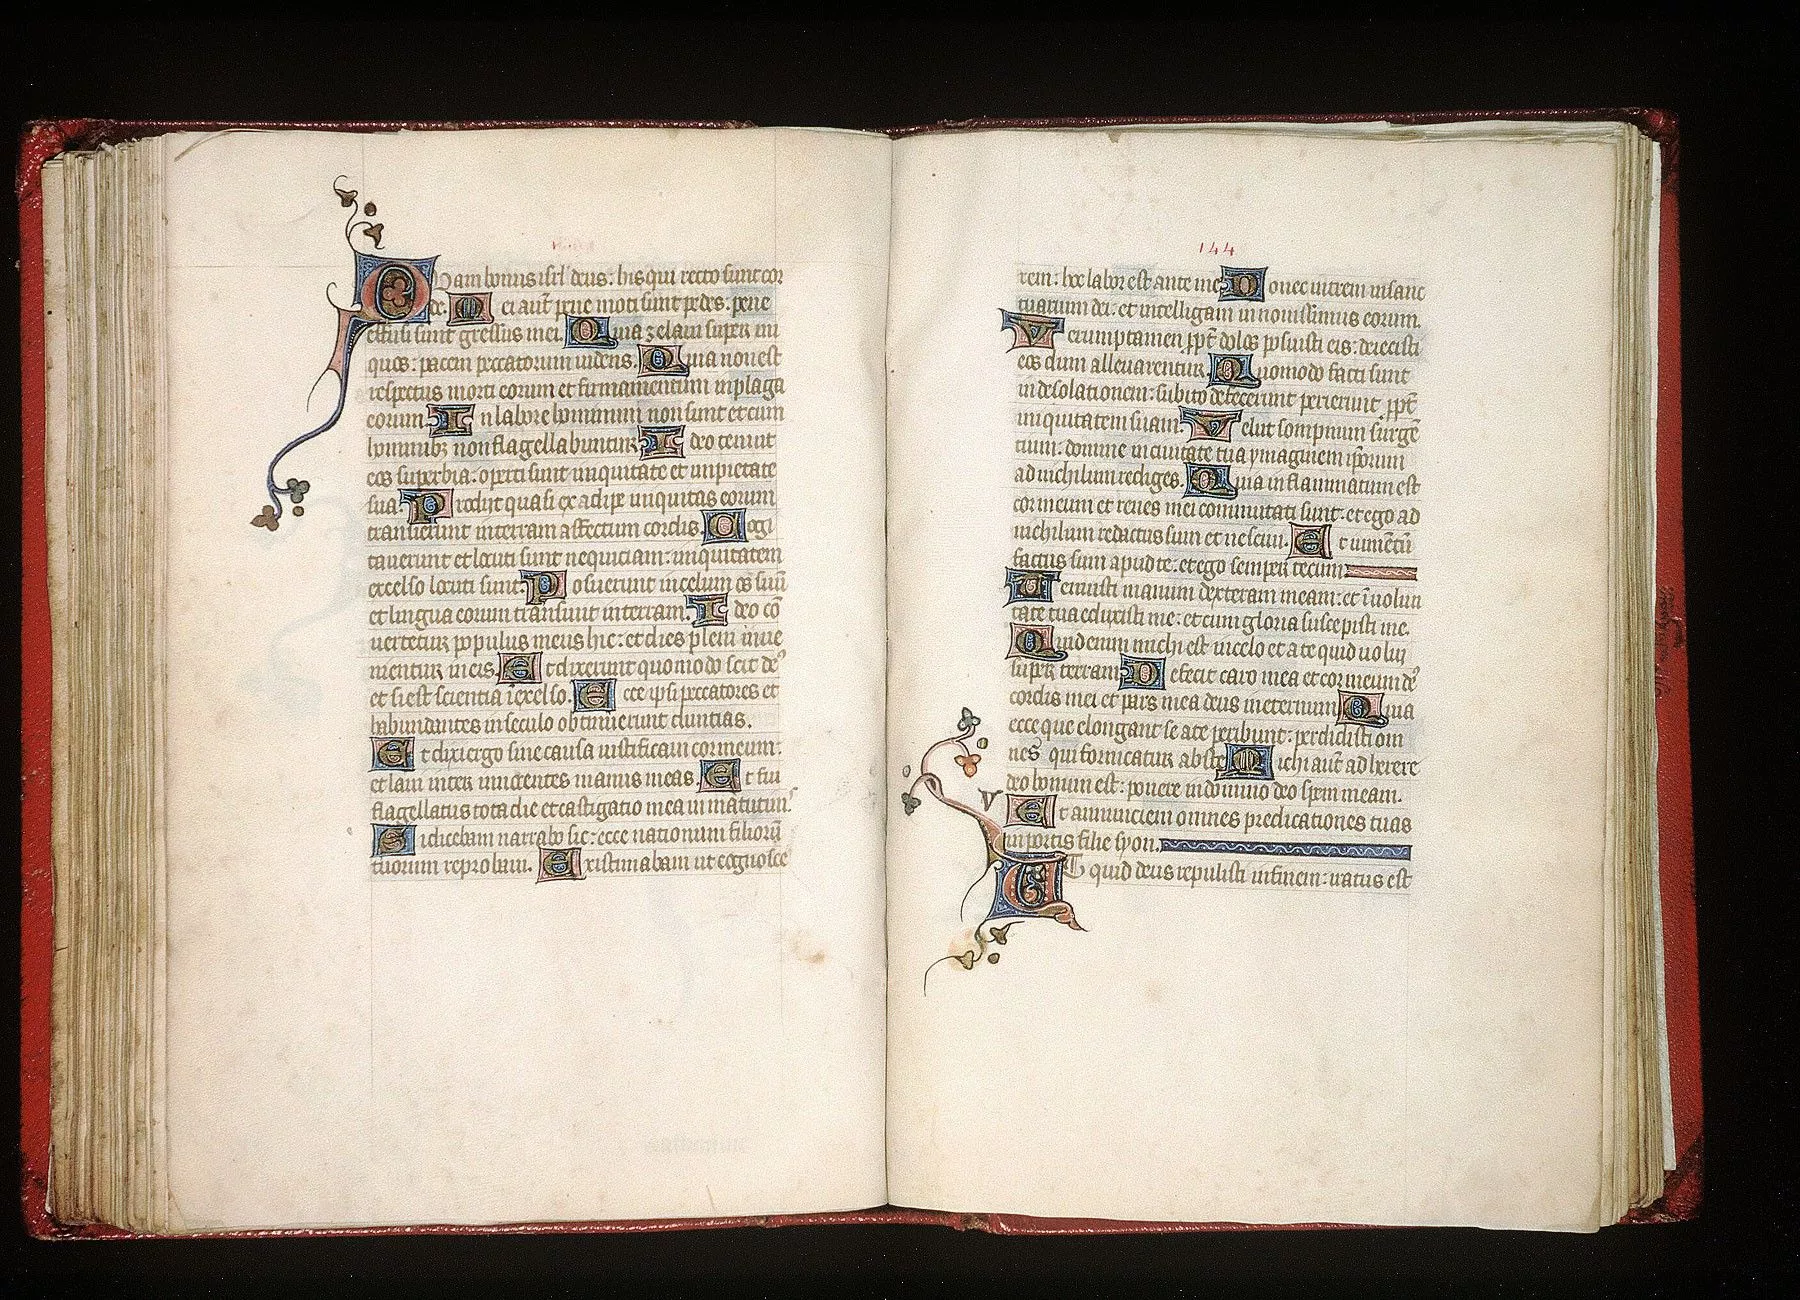 Quam bonus isrl' deus: hiis qui recto sunt cor
de. Mei aut̄ pene moti sunt pedes. pene
effusi sunt gressus mei. Quia zelavi super ini
quos: pacem peccatorum videns. Quia non est
respectus morti eorum et firmamentum in plaga
eorum. In labore hominum non sunt et cum
hominibz non flagellabuntur. Ideo tenuit
eos superbia: operti sunt iniquitate et impietate
sua. Prodiit quasi ex adipe iniquitas eorum
transierunt in terram affectum cordis. Cogi
taverunt et locuti sunt nequiciam: iniquitatem
excelso locuti sunt. Posuerunt in celum os suū
et lingua eorum transiuit in terram. Ideo cō
uertetur populus meus hic: et dies pleni inue
nientur in eis. Et dixerunt quomodo scit de'
et si est scientia ī excelso. Ecce ipsi peccatores et
habundantes in seculo obtinuerunt diuitias.
Et dixi ergo sine causa iustificaui cor meum:
et laui inter innocentes manus meas. Et fui
flagellatus tota die et castigatio mea in matutin'
Si dicebam narrabo sic: ecce nationum filiorū
tuorum reprobaui. Existimabam ut cognosce
144
rem: hoc labor est ante me. Donec intrem in sanc
tuarium dei: et intelligam in nouissimis eorum.
Verumptamen ꝓpt̄ dolos posuisti eis: deiecisti
eos dum alleuarentur. Quomodo facti sunt
in desolationem: subito defecerunt perierunt ꝓpt̄
iniquitatem suam. Velut sompnum surgē
tium: domine in ciuitate tua ymaginem ip̄orum
ad nichilum rediges. Quia inflammatum est
cor meum et renes mei commutati sunt: et ego ad
nichilum redactus sum et nesciui. Et iumentū
factus sum apud te: et ego semper tecum
Tenuisti manum dexteram meam: et ī uolun
tate tua eduxisti me: et cum gloria suscepisti me.
Quid enim michi est in celo et a te quid uolui
super terram. Defecit caro mea et cor meum de'
cordis mei et pars mea deus in eternum. Quia
ecce que elongant se a te peribunt: perdidisti om
nes qui fornicatur abs te. Michi aut̄ adherere
deo bonum est: ponere in domino deo spem meam.
V
Et annunciem omnes predicationes tuas
in portis filie syon.
Ut quid deus repulisti in finem: iratus est